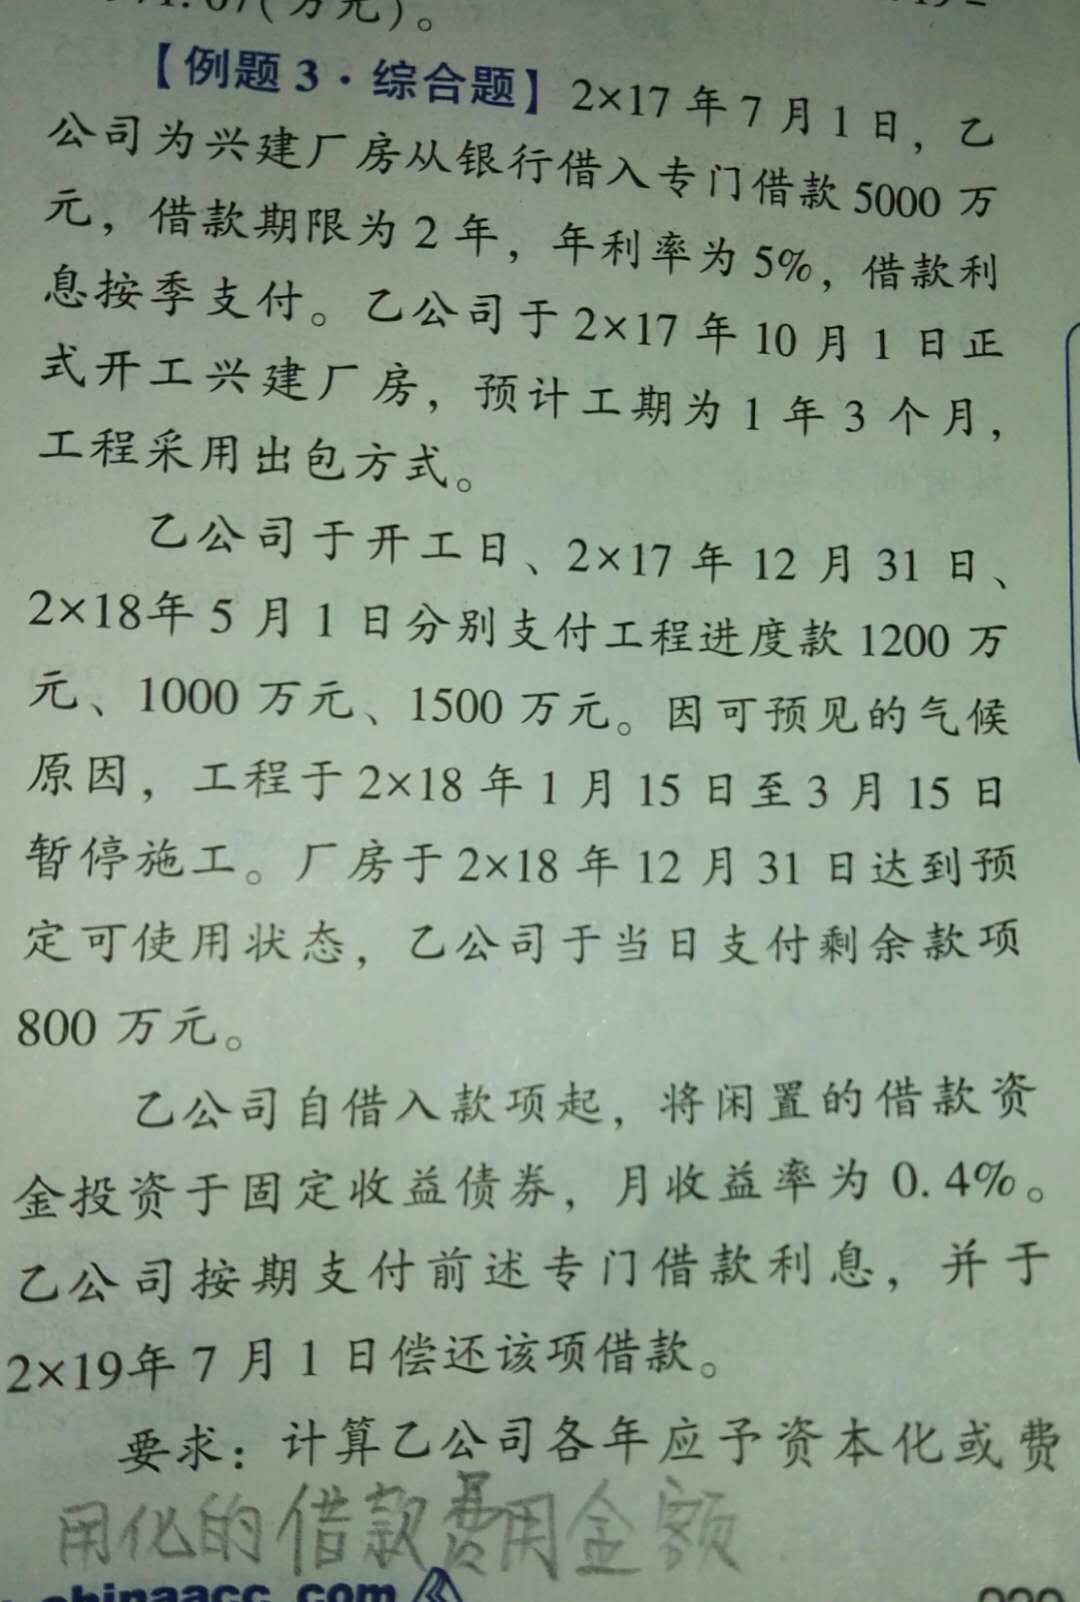 (万元)。
【例题3·综合题】2×17年7月1日，乙
公司为兴建厂房从银行借入专门借款5000万
元，借款期限为2年，年利率为5%，借款利
息按季支付。乙公司于2×17年10月1日正
式开工兴建厂房，预计工期为1年3个月，
工程采用出包方式。
乙公司于开工日、2×17年12月31日、
2×18年5月1日分别支付工程进度款1200万
元、1000万元、1500万元。因可预见的气候
原因，工程于2×18年1月15日至3月15日
暂停施工。厂房于2×18年12月31日达到预
定可使用状态，乙公司于当日支付剩余款项
800万元。
乙公司自借入款项起，将闲置的借款资
金投资于固定收益债券，月收益率为0.4%。
乙公司按期支付前述专门借款利息，并于
2×19年7月1日偿还该项借款。
要求：计算乙公司各年应予资本化或费
用化的借款费用金额
chinaacc.com